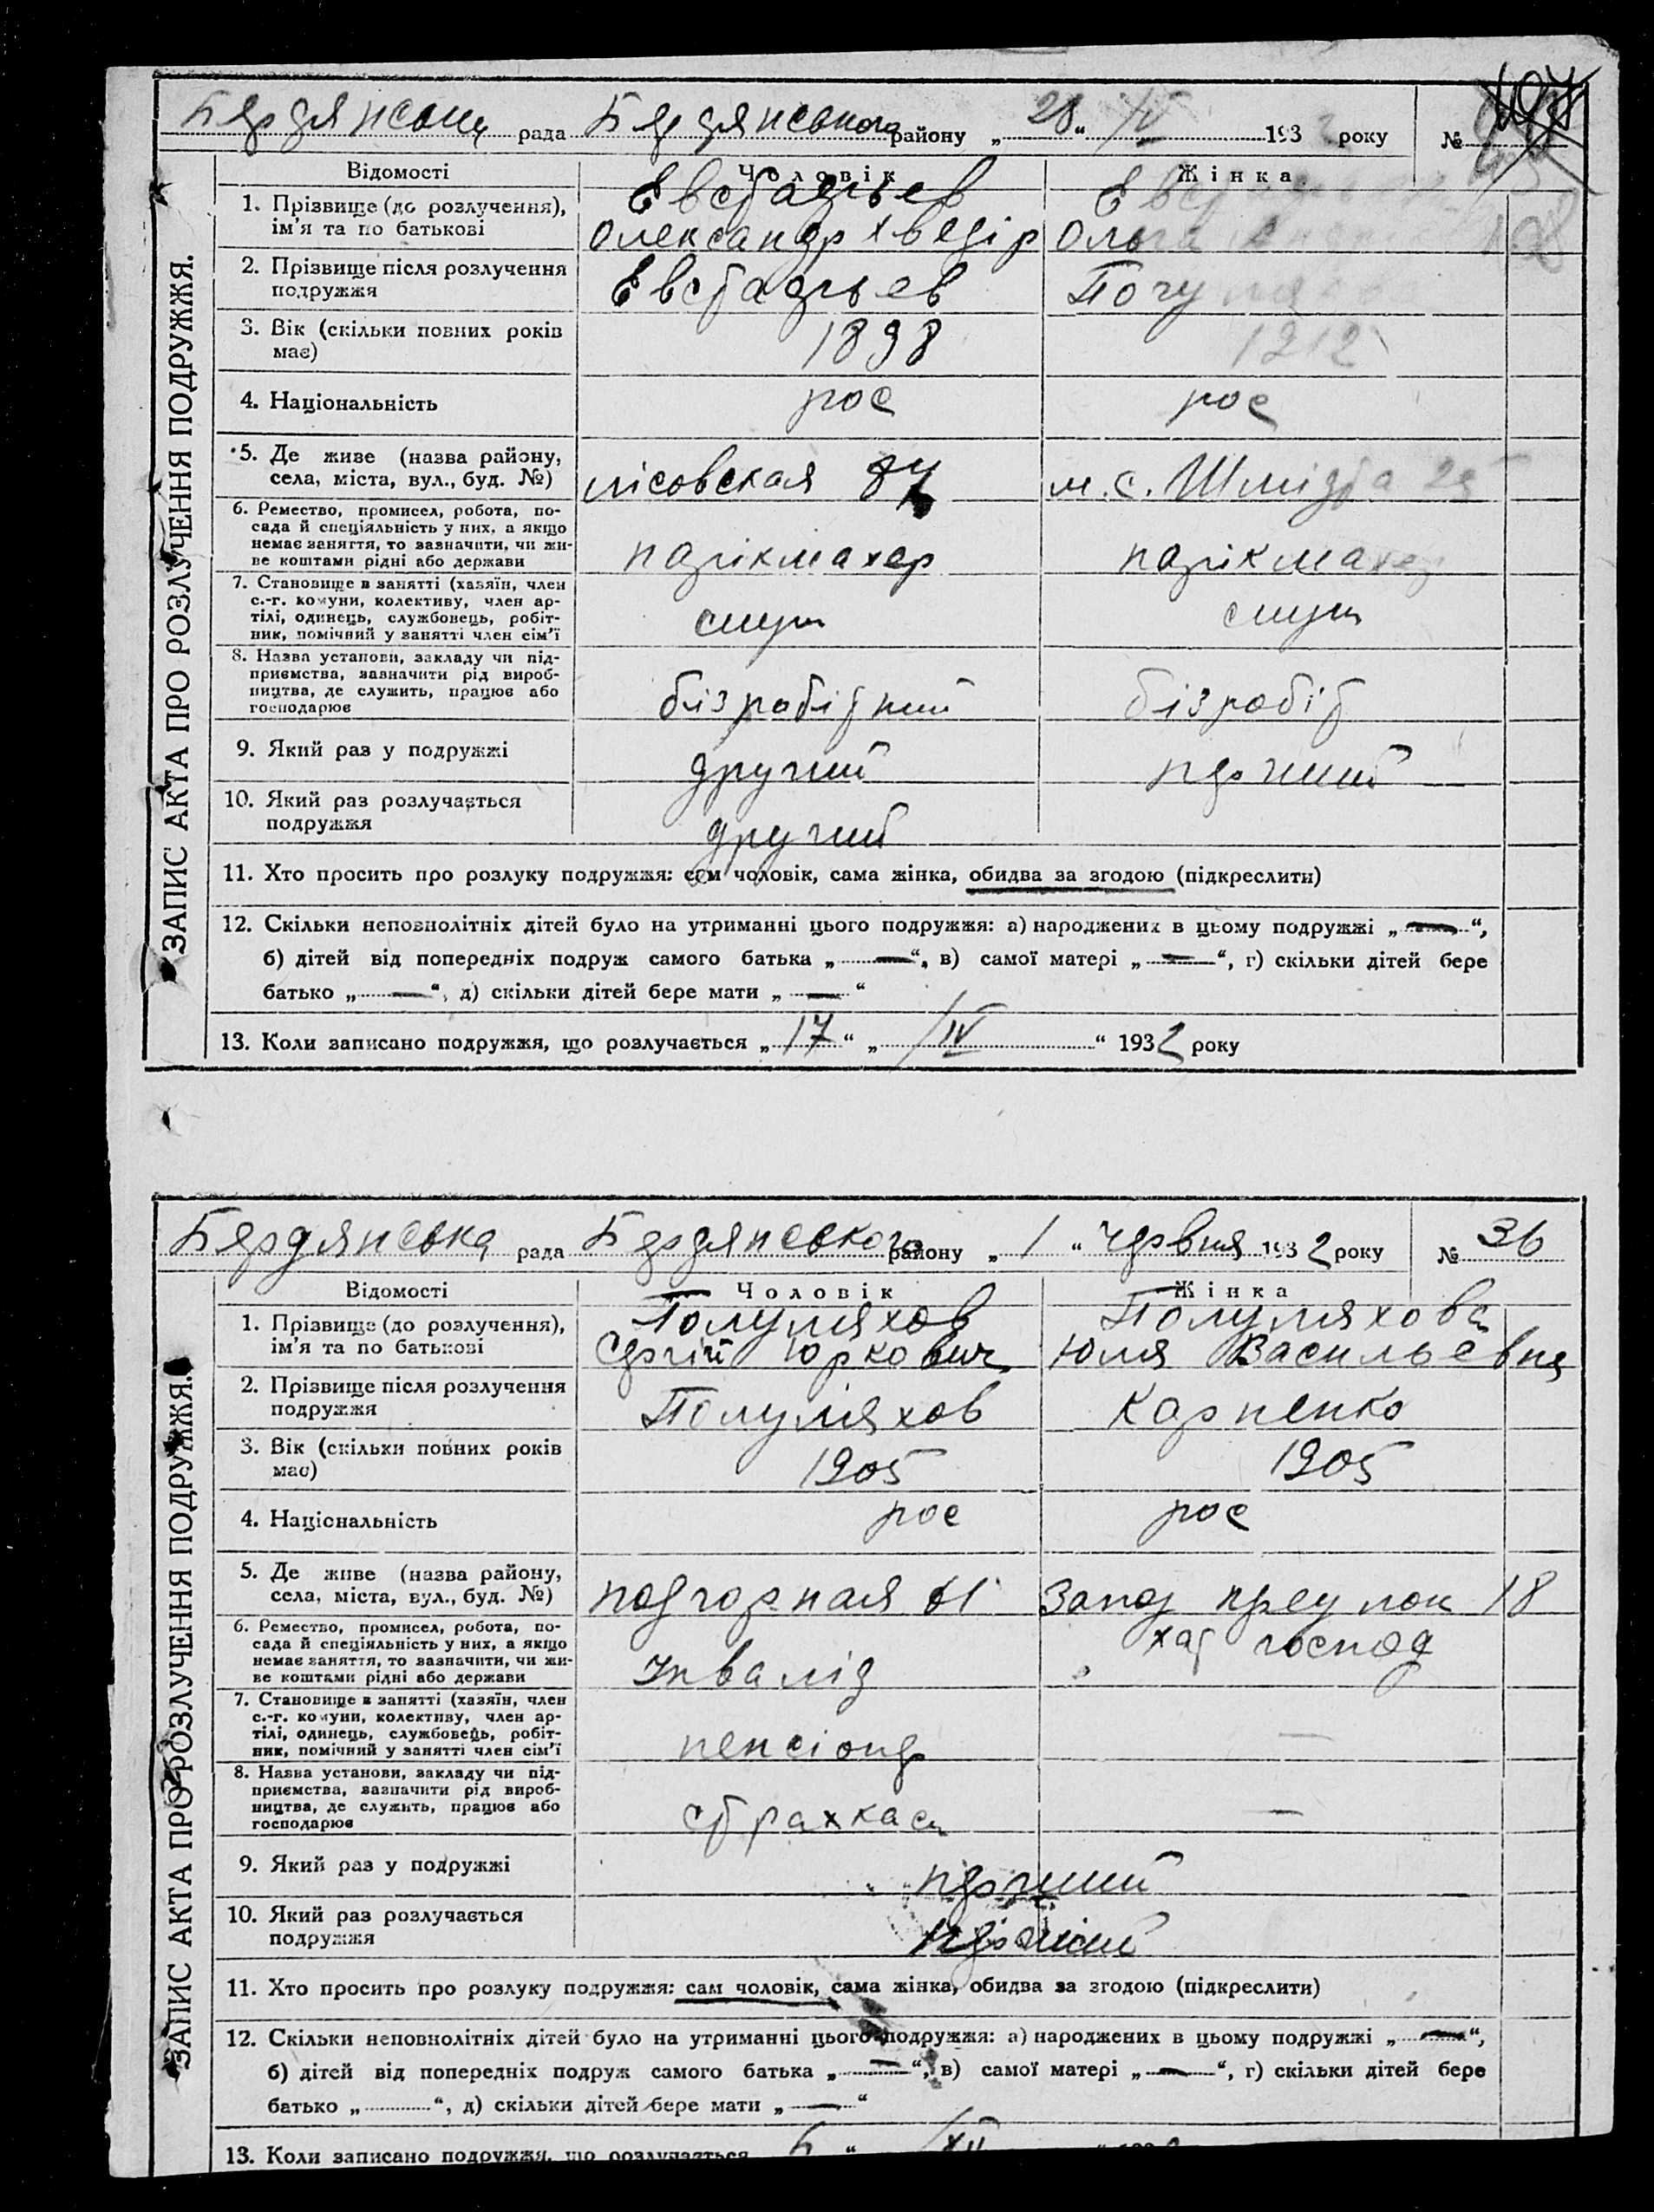 Бердянська рада Бердянського району „ 28 “ /IV 1932 року №
Відомості Чоловік Жінка
1. Прізвище (до розлучення), Евстадьев Евс
ім'я та по батькові Олександр Хведір Ольга
2. Прізвище після розлучення Евстадьев
подружжя
3. Вік (скільки повних років 1898 1912
має)
4. Національність рос рос
5. Де живе (назва району,
села, міста, вул., буд. №) лісовская м. с. Шмідта 25
6. Ремество, промисел, робота, по-
сада й спеціяльність у них, а якщо
немає заняття, то зазначити, чи жи- парікмахер парікмахер
ве коштами рідні або держави
7. Становище в занятті (хазяїн, член
с.-г. комуни, колективу, член ар-
тілі, одинець, службовець, робіт- служ служ
ник, помічний у занятті член сім'ї
8. Назва установи, закладу чи під-
приємства, зазначити рід вироб-
ництва, де служить, працює або безробітний безробіт
господарює
9. Який раз у подружжі другий перший
10. Який раз розлучається
подружжя другий
11. Хто просить про розлуку подружжя: сам чоловік, сама жінка, обидва за згодою (підкреслити)
12. Скільки неповнолітніх дітей було на утриманні цього подружжя: а) народжених в цьому подружжі „ — “,
б) дітей від попередніх подруж самого батька „ — “, в) самої матері „ — “, г) скільки дітей бере
батько „ — “, д) скільки дітей бере мати „ — “
13. Коли записано подружжя, що розлучається „ 17 “ „ /IV “ 1932 року
ЗАПИС АКТА ПРО РОЗЛУЧЕННЯ ПОДРУЖЖЯ.
Бердянська рада Бердянського району „ 1 “ червня 1932 року № 36
Відомості Чоловік Жінка
1. Прізвище (до розлучення), Полуляхов Полуляхова
ім'я та по батькові Сергій Юркович Юлія Васильевна
2. Прізвище після розлучення Полуляхов Карпенко
подружжя
3. Вік (скільки повних років 1905 1905
має)
4. Національність рос рос
5. Де живе (назва району,
села, міста, вул., буд. №) подгорная 61 Запад преулок 18
6. Ремество, промисел, робота, по-
сада й спеціяльність у них, а якщо хат господ
немає заняття, то зазначити, чи жи- Інвалід
ве коштами рідні або держави
7. Становище в занятті (хазяїн, член
с.-г. комуни, колективу, член ар-
тілі, одинець, службовець, робіт- пенсіонер —
ник, помічний у занятті член сім'ї
8. Назва установи, закладу чи під-
приємства, зазначити рід вироб-
ництва, де служить, працює або страхкаса —
господарює
9. Який раз у подружжі перший
10. Який раз розлучається перший
подружжя
11. Хто просить про розлуку подружжя: сам чоловік, сама жінка, обидва за згодою (підкреслити)
12. Скільки неповнолітніх дітей було на утриманні цього подружжя: а) народжених в цьому подружжі „ — “,
б) дітей від попередніх подруж самого батька „ — “, в) самої матері „ — “, г) скільки дітей бере
батько „ “, д) скільки дітей бере мати „ — “
13. Коли записано подружжя, що розлучається /XII
ЗАПИС АКТА ПРО РОЗЛУЧЕННЯ ПОДРУЖЖЯ.